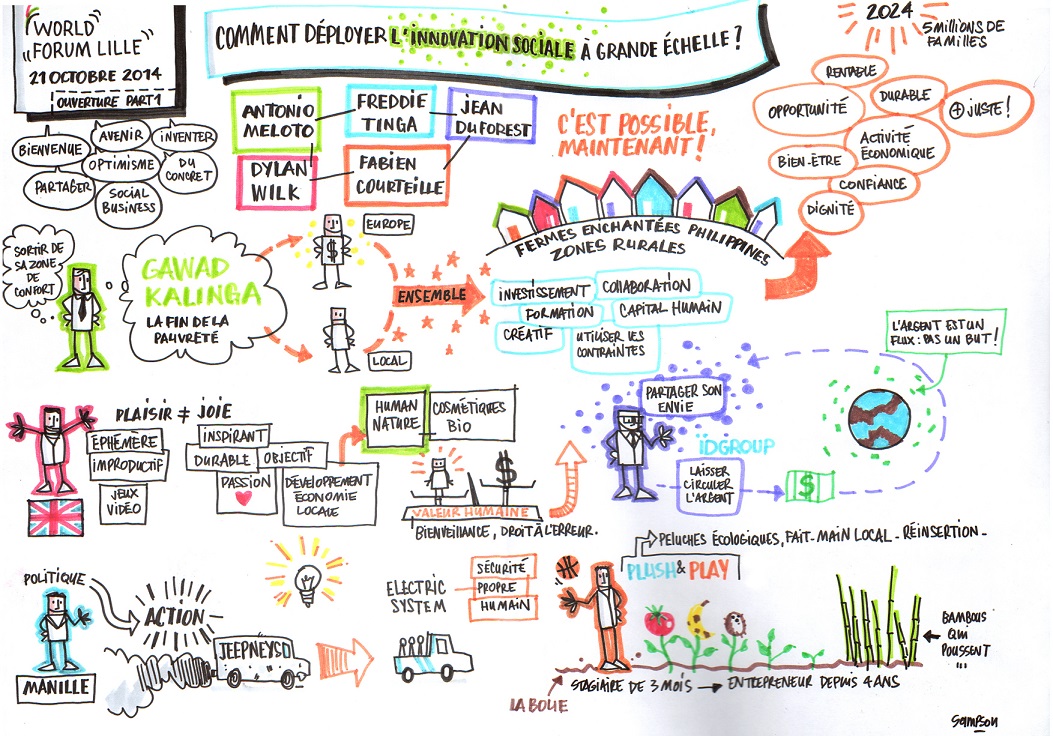 "WORLD
"FORUM LILLE"
21 OCTOBRE 2014
OUVERTURE PART 1
COMMENT DÉPLOYER L'INNOVATION SOCIALE À GRANDE ÉCHELLE ?
2024
5 MILLIONS DE
FAMILLES
BIENVENUE
AVENIR
INVENTER
OPTIMISME
DU
CONCRET
PARTAGER
SOCIAL
BUSINESS
ANTONIO
MELOTO
FREDDIE
TINGA
JEAN
DUFOREST
DYLAN
WILK
FABIEN
COURTEILLE
C'EST POSSIBLE,
MAINTENANT !
RENTABLE
OPPORTUNITÉ
DURABLE
+ JUSTE !
ACTIVITÉ
ÉCONOMIQUE
BIEN-ÊTRE
CONFIANCE
DIGNITÉ
SORTIR DE
SA ZONE
DE
CONFORT
GAWAD
KALINGA
LA FIN DE LA
PAUVRETÉ
EUROPE
$
LOCAL
ENSEMBLE
FERMES ENCHANTÉES PHILIPPINES
ZONES RURALES
INVESTISSEMENT
COLLABORATION
FORMATION
CAPITAL HUMAIN
CRÉATIF
UTILISER LES
CONTRAINTES
L'ARGENT EST UN
FLUX : PAS UN BUT !
PLAISIR ≠ JOIE
ÉPHÉMÈRE
IMPRODUCTIF
JEUX
VIDÉO
INSPIRANT
DURABLE
OBJECTIF
PASSION
DÉVELOPPEMENT
ÉCONOMIE
LOCALE
HUMAN
NATURE
COSMÉTIQUES
BIO
$
VALEUR HUMAINE
BIENVEILLANCE, DROIT À L'ERREUR.
PARTAGER SON
ENVIE
ÏDGROUP
LAISSER
CIRCULER
L'ARGENT
$
POLITIQUE
ACTION
MANILLE
JEEPNEYSD
ELECTRIC
SYSTEM
SÉCURITÉ
PROPRE
HUMAIN
PELUCHES ÉCOLOGIQUES, FAIT-MAIN LOCAL - RÉINSERTION -
PLUSH & PLAY
BAMBOUS
QUI
POUSSENT
...
LA BOUE
STAGIAIRE DE 3 MOIS → ENTREPRENEUR DEPUIS 4 ANS
Sampson